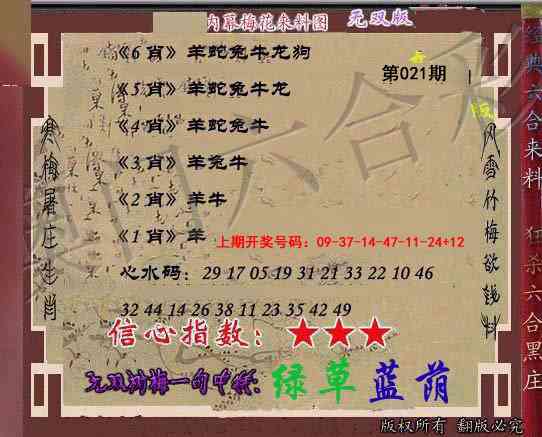 内幕梅花来料图 无双版
《6 肖》羊蛇兔牛龙狗
第021期
《5 肖》羊蛇兔牛龙
《4 肖》羊蛇兔牛
《3 肖》羊兔牛
《2 肖》羊牛
《1 肖》羊
上期开奖号码：09-37-14-47-11-24+12
心水码：29 17 05 19 31 21 33 22 10 46
32 44 14 26 38 11 23 35 42 49
信心指数：★★★
无双寒梅一句中特：绿草蓝荫
寒梅屠庄生肖
风雪竹梅欲钱料
经典六合来料 狂杀六合黑庄
版
澳门六合彩
版权所有 翻版必究